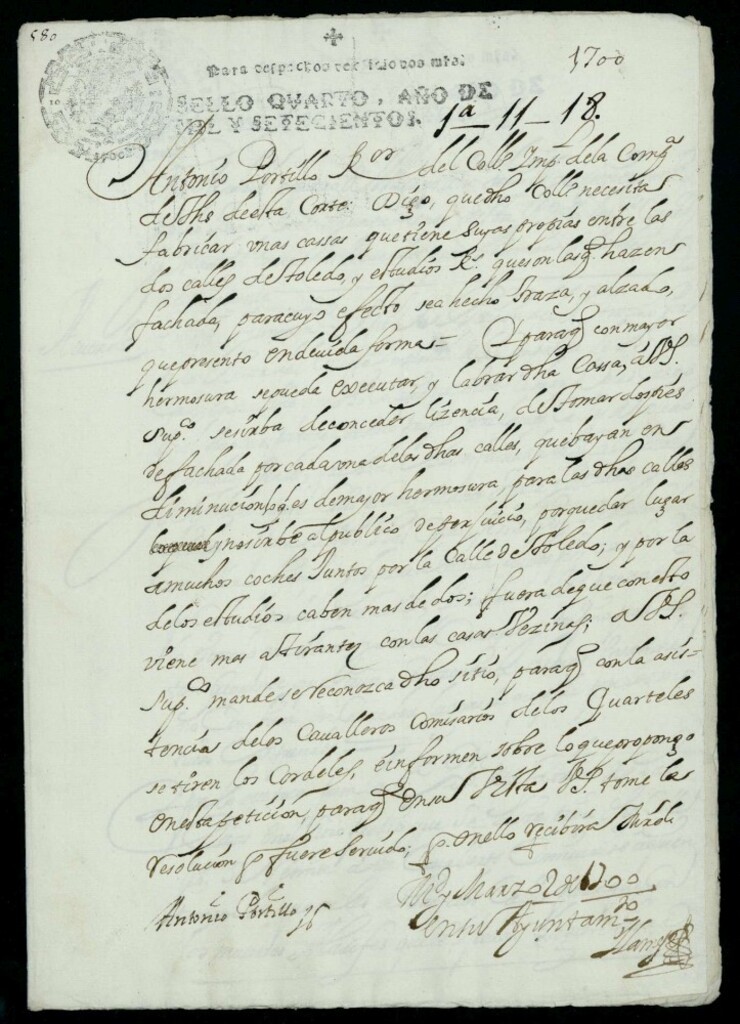 580
✝
Para despachos de oficio dos mrs.
1700
SELLO QVARTO, AÑO DE
MIL Y SETECIENTOS.
1ª 11-18.
Antonio Portillo Ror del Colle. Impl. dela Compª
de Jhs deesta Corte: Digo, quedho Colle. necesita
fabricar vnas cassas quetiene suyas propias entre las
dos calles de toledo, y estudios Rs. queson lasq hazen
fachada, paracuyo efecto sea hecho traza, y alzado,
quepresento endeuida forma = Yparaq conmayor
hermosura sepueda executar, y labrar dha Cassa, a VS.
Supco. sesirba deconceder lizencia, de tomar dospies
defachada porcadavna delas dhas calles, quebayan en
diminucion, pues demayor hermosura para las dhas calles
ynosirbe alpublico deperjuicio, porquedar lugar
amuchos coches Juntos por la Calle de toledo; y por la
delos estudios caben mas de dos; fuera deque con esto
viene mas a tirantez con las casas Vezinas; a VS.
Supco mande se reconozca dho sitio, paraq con la asis-
tencia delos Cavalleros Comisarios delos Quarteles
setiren los Cordeles, einformen sobre loquepropongo
enesta peticion, paraq en su Vista VS. tome la
resolucion q fuere Servido; q enello recibira
Antonio Portillo
Md y Marzo 2 de 1700
en su Ayuntamto